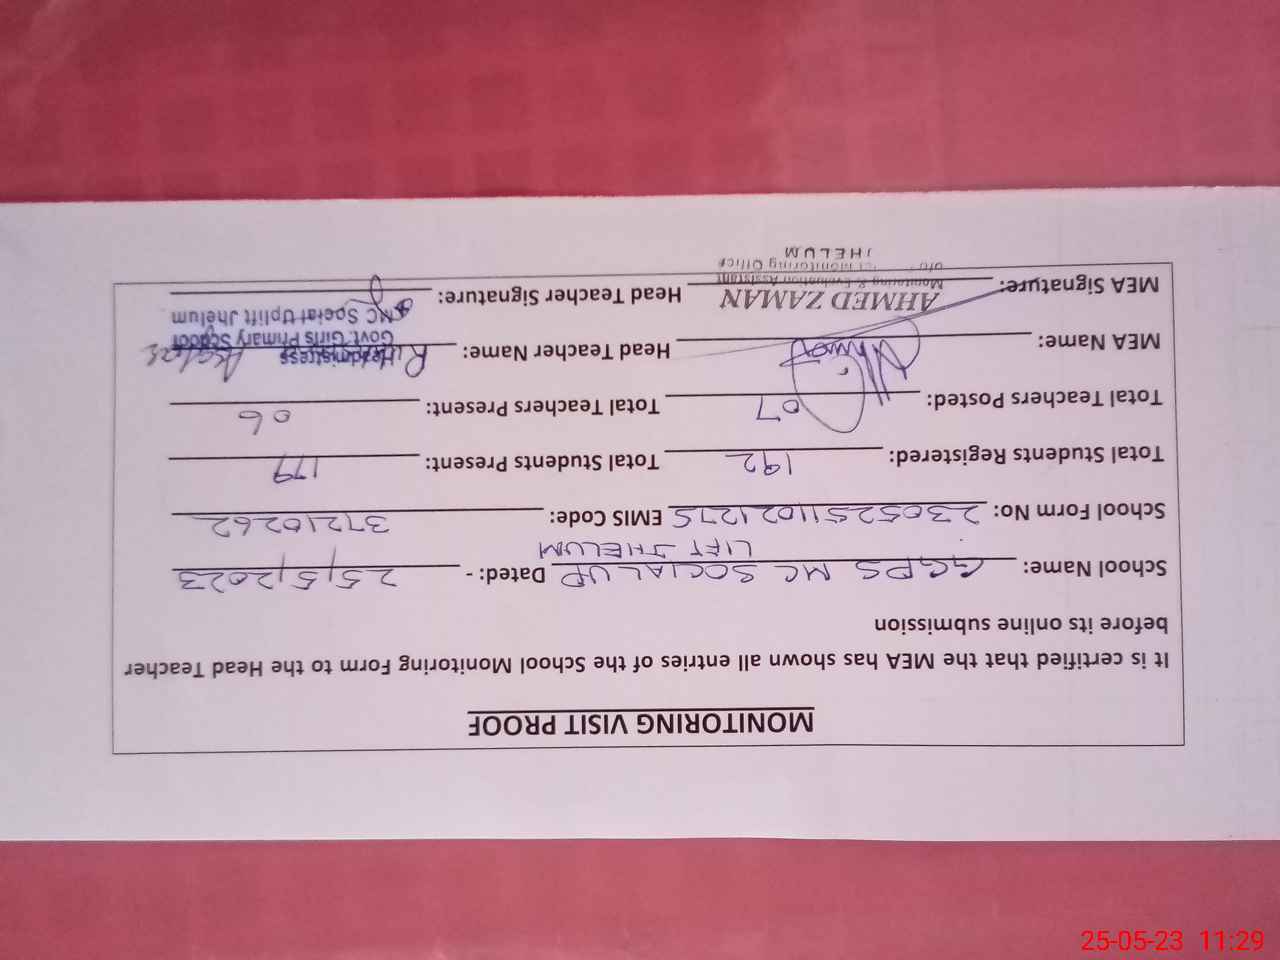 MONITORING VISIT PROOF
It is certified that the MEA has shown all entries of the School Monitoring Form to the Head Teacher
before its online submission
School Name: GGPS MC SOCIAL UP LIFT JHELUM Dated: - 25/5/2023
School Form No: 2305251102127S EMIS Code: 37210262
Total Students Registered: 192 Total Students Present: 179
Total Teachers Posted: 07 Total Teachers Present: 06
MEA Name: Head Teacher Name:
Headmistress
Govt. Girls Primary School
MC Social Uplift Jhelum
MEA Signature: Head Teacher Signature:
AHMED ZAMAN
Monitoring & Evaluation Assistant
Monitoring Office
JHELUM
25-05-23 11:29